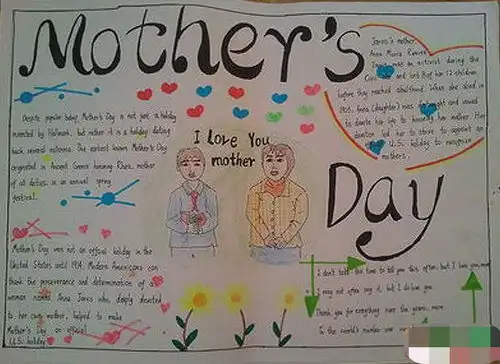 Mother's
Day
I Love You
mother
Despite popular belief, Mother's Day is not just a holiday
invented by Hallmark, but rather it is a holiday dating
back several millennia. The earliest known Mother's Day
originated in Ancient Greece honoring Rhea, mother
of all deities, in an annual spring
festival.
Mother's Day was not an official holiday in the
United States until 1914. Modern Americans can
thank the perseverance and determination of a
woman named Anna Jarvis who, deeply devoted
to her own mother, helped to make
Mother's Day an official
U.S. holiday.
Jarvis's mother,
Anna Maria Reeves
Jarvis was an activist during the
and lost 8 of her 12 children
before they reached adulthood. When she died in
1905, Anna (daughter) was and vowed
to denote her life to honoring her mother. Her
devotion led her to strive to appoint an
U.S. holiday to recognize
mothers.
I don't take the time to tell you this often, but I love you, mom
I may not often say it, but I do love you.
Thank you for everything over the years, mom.
To the world's number one